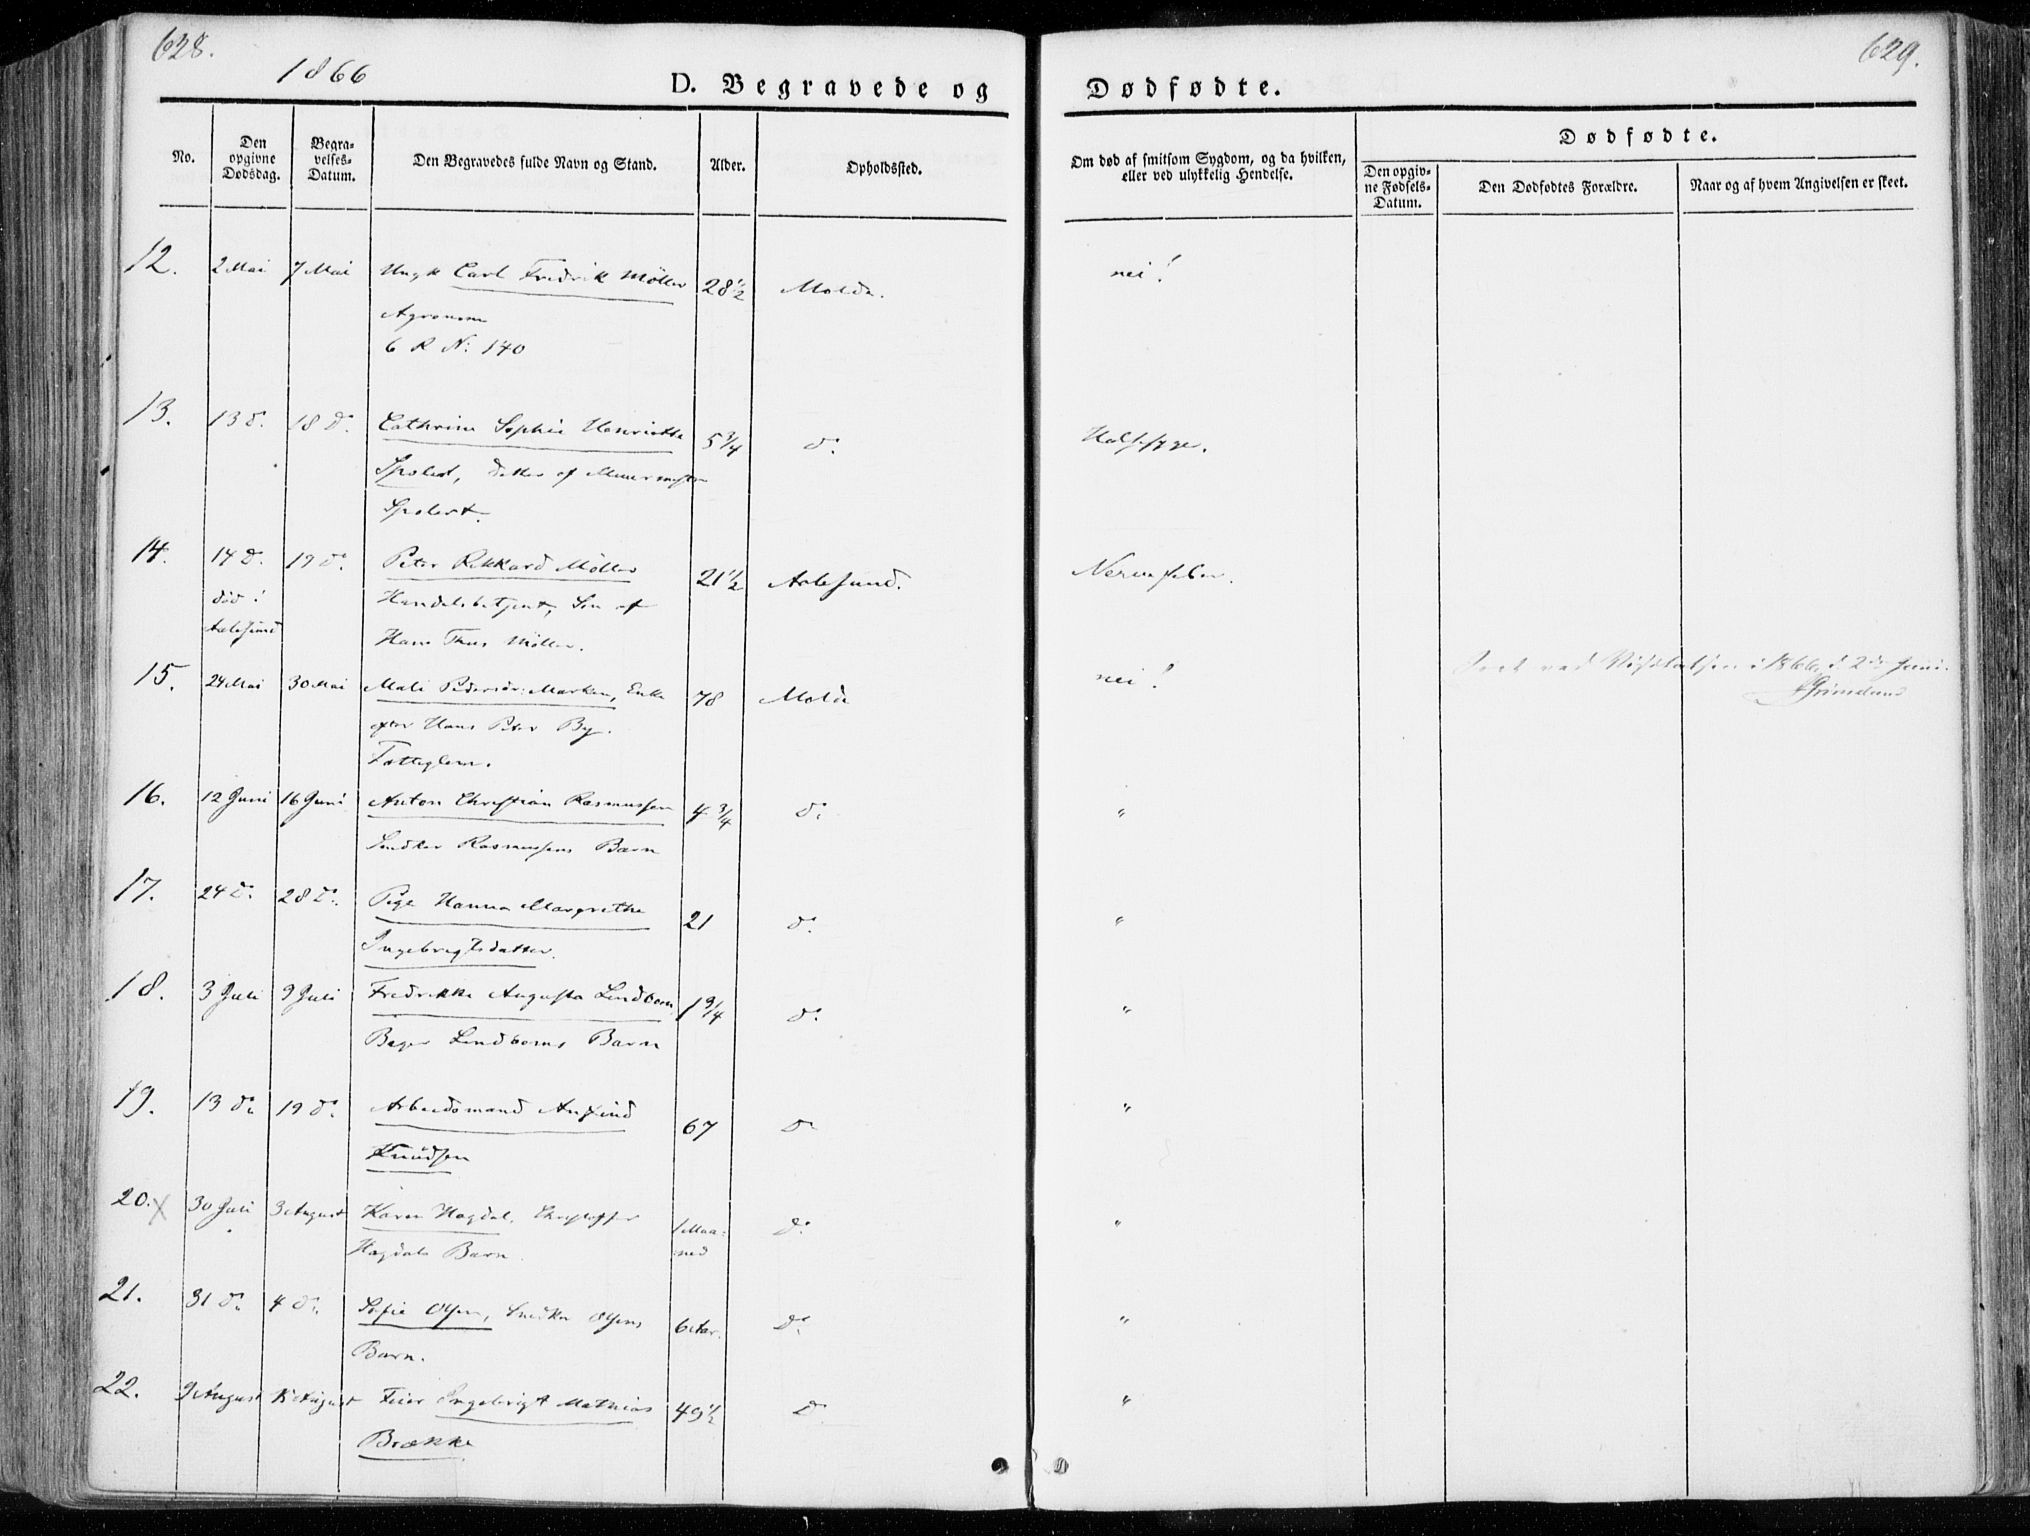 628.
1866
D. Begravede og
No.
Den opgivne Dødsdag.
Begravelses-Datum.
Den Begravedes fulde Navn og Stand.
Alder.
Opholdssted.
12. 2 Mai 7 Mai Ungk Carl Fredrik Møller 28 1/2 Molde.
Agronom
6 R N: 140
13. 13 d. 18 d. Cathrine Sophie Henriette 5 3/4 do
Spolert, datter af Muurmester
Spolert.
14. 14 d. 19 do Peter Rikkard Møller 21 1/2 Aalesund.
død i Handelsbetjent, Søn af
Aalesund Hans Thiis Møller.
15. 24 Mai 30 Mai Mali Pedersdr: Marken, Enke 78 Molde
efter Hans Peter By.
Fattiglem.
16. 12 Juni 16 Juni Anton Christian Rasmussen 4 3/4 do
Snedker Rasmussens Barn
17. 24 do 28 do Pige Hanna Margrethe 21 do
Ingebrigtsdatter.
18. 3 Juli 9 Juli Fredrikke Augusta Lindborn 1 9/4 do
Bager Lindborns Barn
19. 13 do 19 do Arbeidsmand Anfind 67 do
Knudsen
20. X 30 Juli 3 August Karen Hagdal, Christoffer 1 Maa-
Hagdals Barn. ned do
21. 31 do 4 do Sofie Olsen, Snedker Olsens 6 Aar. do
Barn.
22. 9 August August Feier Ingebrigt Mathias 49 1/2 do
Brække
629.
Dødfødte.
Om død af smitsom Sygdom, og da hvilken,
eller ved ulykkelig Hendelse.
Dødfødte.
Den opgivne Fødsels-Datum.
Den Dødfødtes Forældre.
Naar og af hvem Angivelsen er skeet.
nei!
Halssyge.
Nervefeber.
nei!
Seet ved Visitatsen i 1866, d. 2den Juni.
Grimelund
"
"
"
"
"
"
"